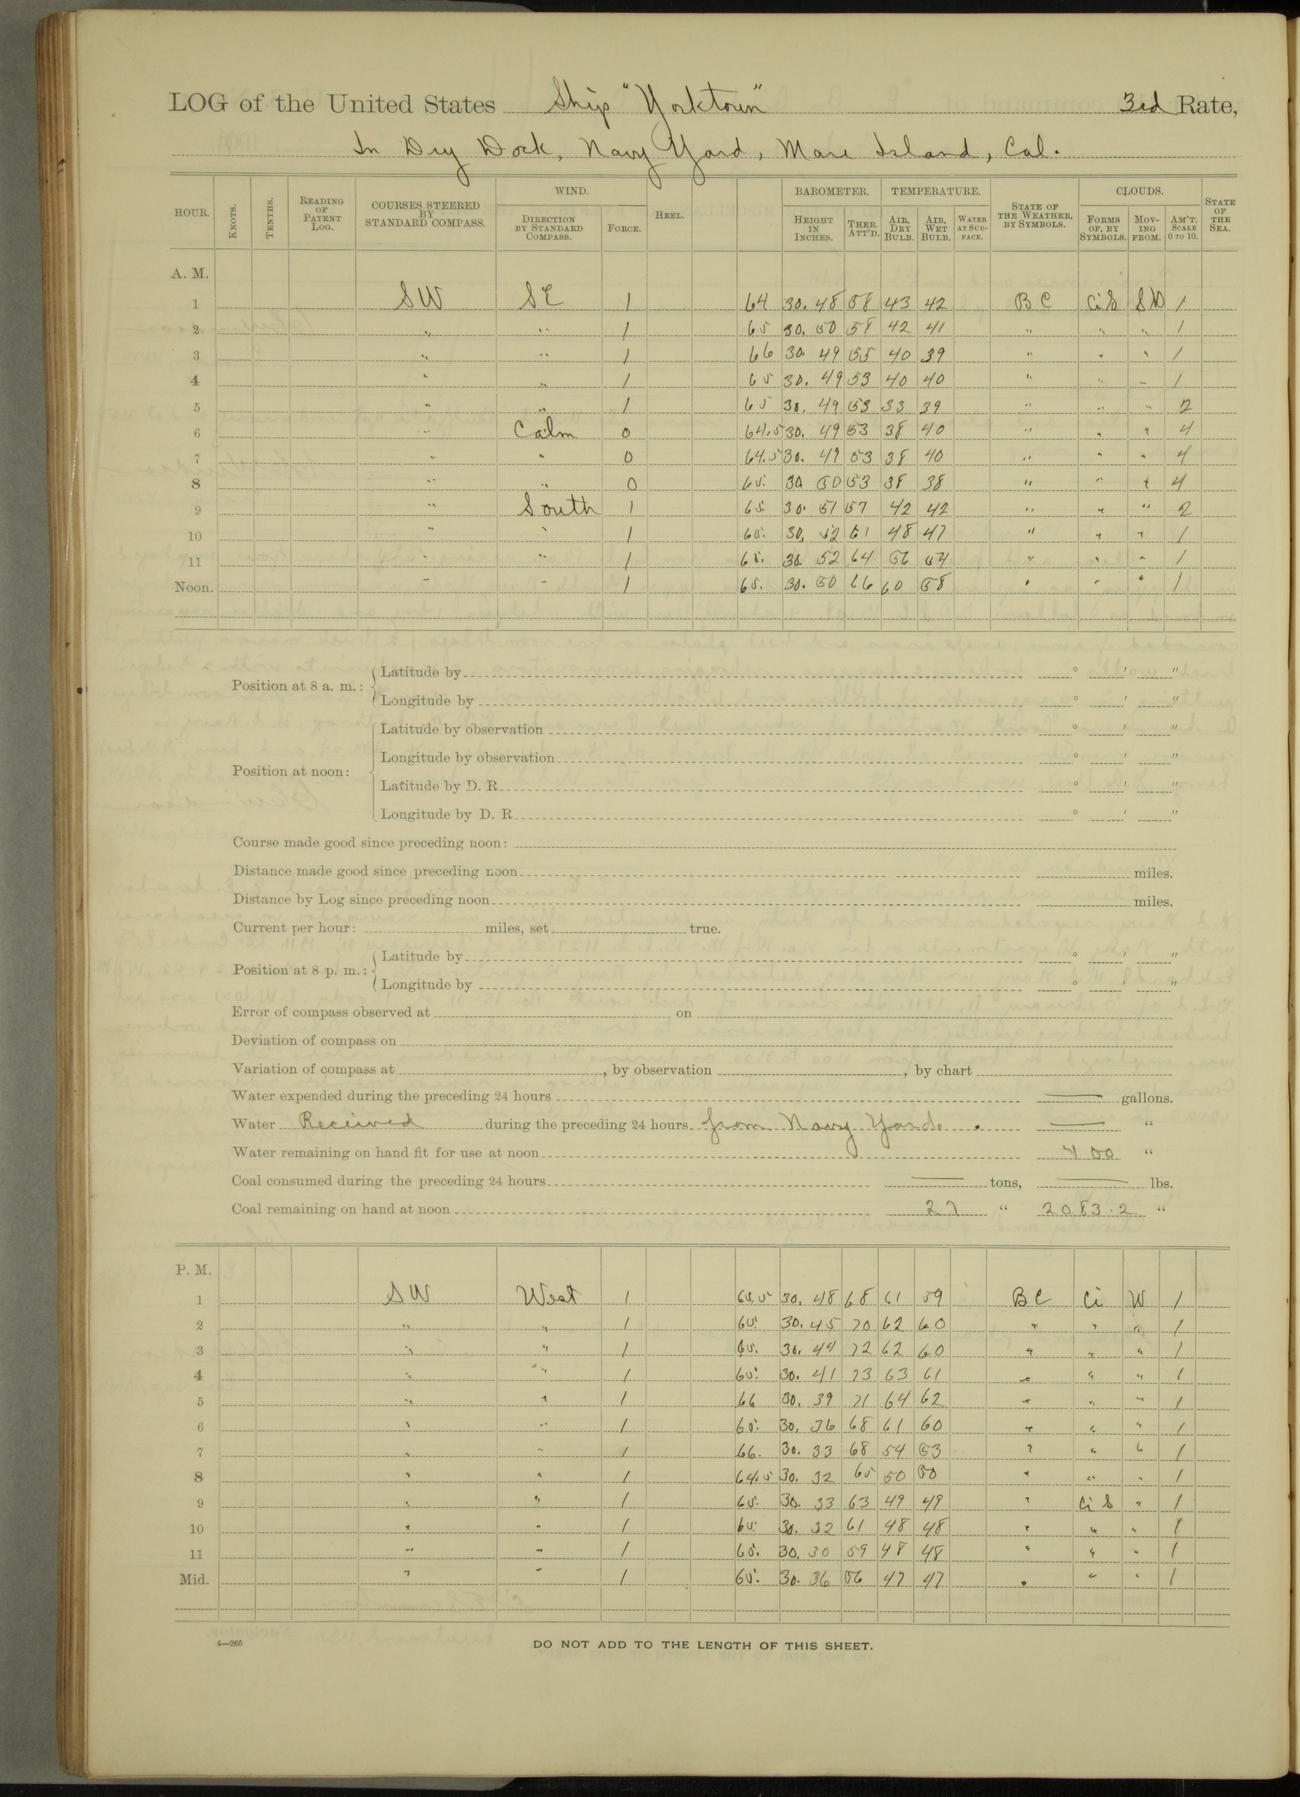 LOG of the United States Ship "Yorktown" 3rd Rate,
In Dry Dock, Navy Yard, Mare Island, Cal.
HOUR. KNOTS. TENTHS. READING OF PATENT LOG. COURSES STEERED BY STANDARD COMPASS. WIND. DIRECTION BY STANDARD COMPASS. FORCE. HEEL. BAROMETER. HEIGHT IN INCHES. THER. ATT'D. TEMPERATURE. AIR, DRY BULB. AIR, WET BULB. WATER AT SURFACE. STATE OF THE WEATHER, BY SYMBOLS. CLOUDS. FORMS OF, BY SYMBOLS. MOVING FROM. AM'T. SCALE 0 TO 10. STATE OF THE SEA.
A. M.
1 SW SE 1 64 30.48 58 43 42 BC CiS SW 1
2 " " 1 65 30.50 58 42 41 " " " 1
3 " " 1 66 30.49 55 40 39 " " " 1
4 " " 1 65 30.49 53 40 40 " " " 1
5 " " 1 65 30.49 53 33 39 " " " 2
6 " Calm 0 64.5 30.49 53 38 40 " " " 4
7 " " 0 64.5 30.49 53 38 40 " " " 4
8 " " 0 65. 30 50 53 38 38 " " " 4
9 " South 1 65 30.51 57 42 42 " " " 2
10 " " 1 65. 30.52 61 48 47 " " " 1
11 " " 1 65. 30.52 64 56 54 " " " 1
Noon. " " 1 65. 30.50 66 60 58 " " " 1
Position at 8 a. m.: Latitude by ° ′ ″
Longitude by ° ′ ″
Position at noon: Latitude by observation ° ′ ″
Longitude by observation ° ′ ″
Latitude by D. R. ° ′ ″
Longitude by D. R. ° ′ ″
Course made good since preceding noon:
Distance made good since preceding noon miles.
Distance by Log since preceding noon miles.
Current per hour: miles, set true.
Position at 8 p. m.: Latitude by ° ′ ″
Longitude by ° ′ ″
Error of compass observed at on
Deviation of compass on
Variation of compass at , by observation , by chart
Water expended during the preceding 24 hours — gallons.
Water Received during the preceding 24 hours from Navy Yard. — "
Water remaining on hand fit for use at noon 400 "
Coal consumed during the preceding 24 hours — tons, — lbs.
Coal remaining on hand at noon 27 " 2083.2 "
P. M.
1 SW West 1 65.5 30.48 68 61 59 BC Ci W 1
2 " " 1 65. 30.45 70 62 60 " " " 1
3 " " 1 65. 30.44 72 62 60 " " " 1
4 " " 1 65. 30.41 73 63 61 " " " 1
5 " " 1 66 30.39 71 64 62 " " " 1
6 " " 1 65. 30.36 68 61 60 " " " 1
7 " " 1 66. 30.33 68 54 53 " " " 1
8 " " 1 64.5 30.32 65 50 50 " " " 1
9 " " 1 65. 30.33 63 49 49 " CiS " 1
10 " " 1 65. 30.32 61 48 48 " " " 1
11 " " 1 65. 30.30 59 48 48 " " " 1
Mid. " " 1 65. 30.36 56 47 47 " " " 1
4—265
DO NOT ADD TO THE LENGTH OF THIS SHEET.